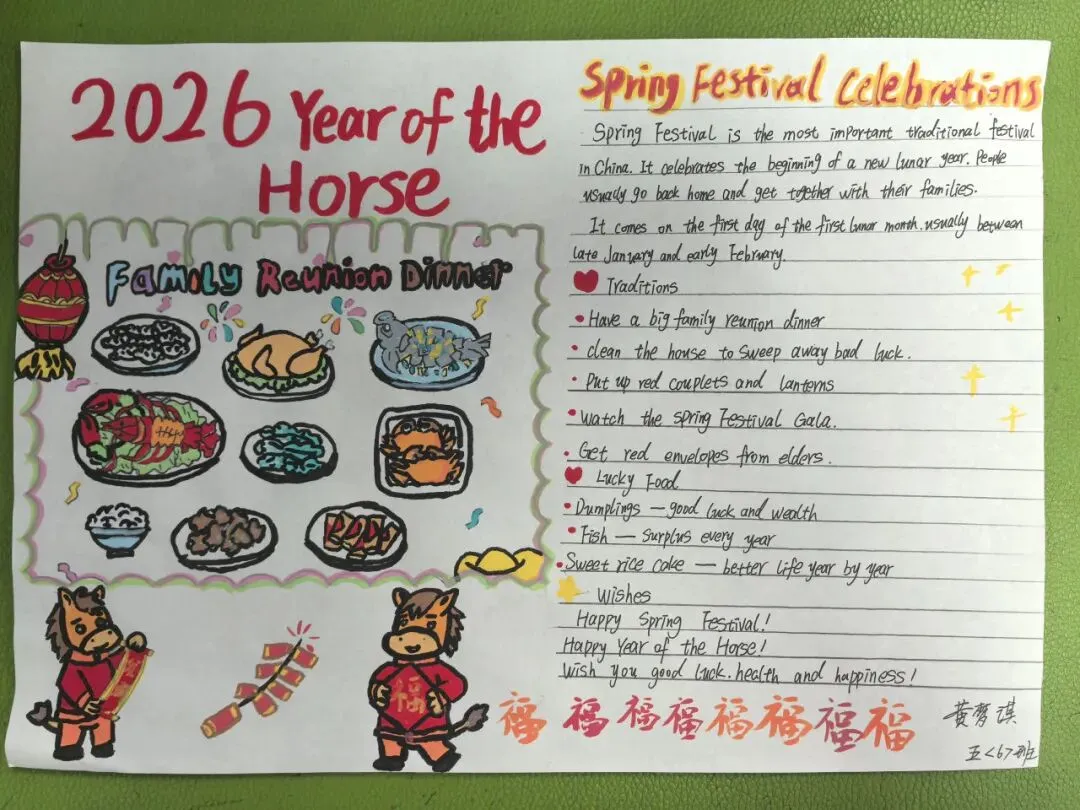 2026 Year of the
Horse
Family Reunion Dinner
福
Spring Festival Celebrations
Spring Festival is the most important traditional festival
in China. It celebrates the beginning of a new lunar year. People
usually go back home and get together with their families.
It comes on the first day of the first lunar month. usually between
late January and early February.
Traditions
• Have a big family reunion dinner
• clean the house to sweep away bad luck.
• Put up red couplets and lanterns
• watch the spring Festival Gala.
• Get red envelopes from elders.
Lucky Food
• Dumplings — good luck and wealth
• Fish — surplus every year
• Sweet rice cake — better life year by year
Wishes
Happy Spring Festival!
Happy Year of the Horse!
Wish you good luck. health and happiness!
福福福福福福福福
黄梦淇
五<6>班